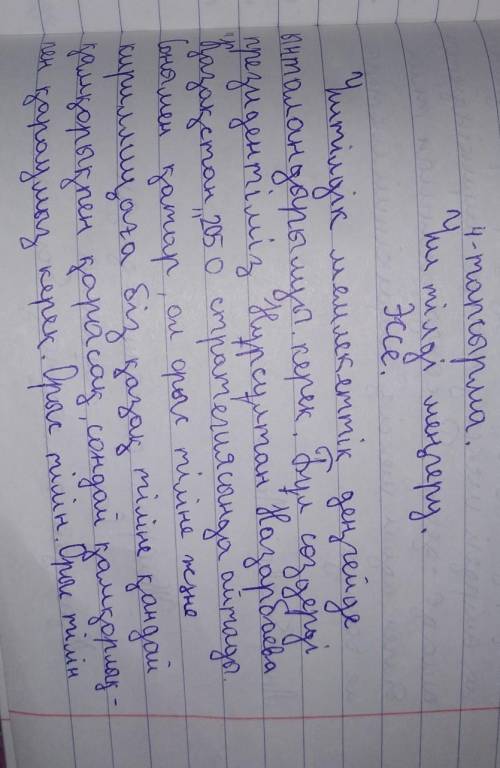 4-тапсырма.
Үш тілді меңгеру.
Эссе.
Үштілдік мемлекеттік деңгейде
ынталандарылуы керек. Бұл сөздерді
президентіміз Нұрсұлтан Назарбаева
"Қазақстан" 2050 стратегиясында айтады.
Сонымен қатар, ол орыс тіліне және
кириллицаға біз қазақ тіліне қандай
қамқорықпен қарасақ, сондай қамқорлық-
пен қарауымыз керек. Орыс тілін. Орыс тілін